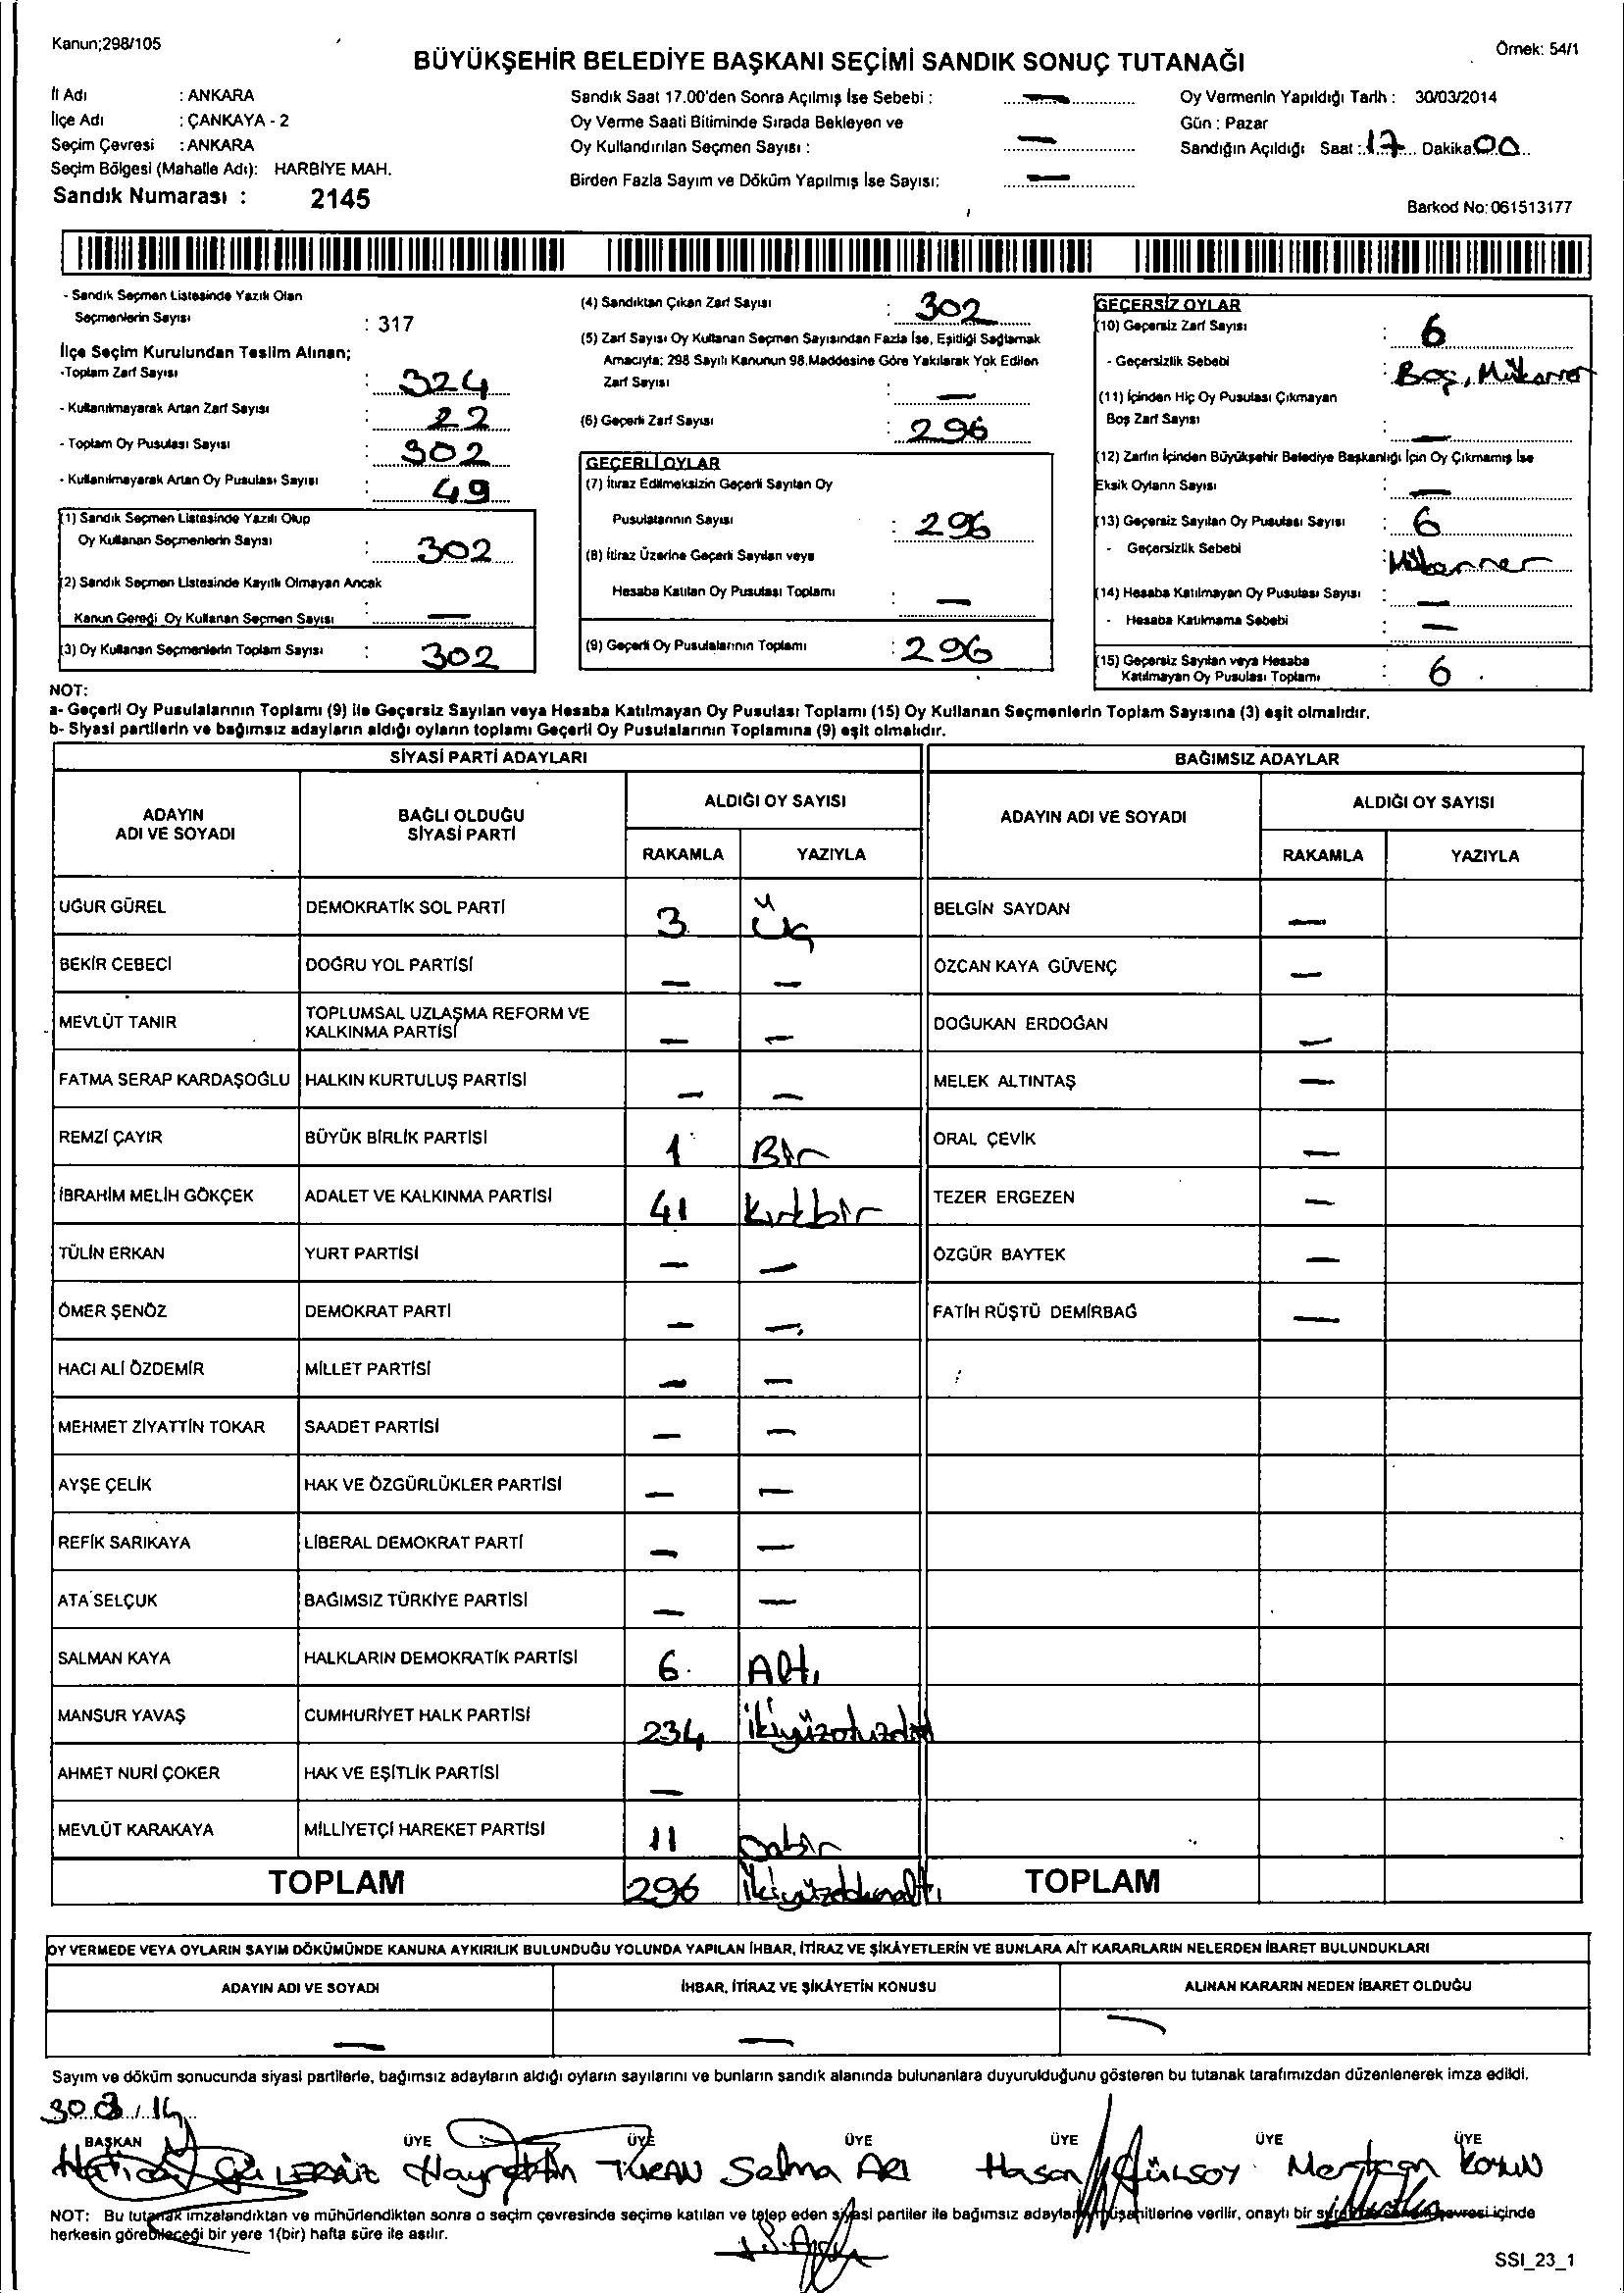 Kanun;298/105
Örnek: 54/1
BÜYÜKŞEHİR BELEDİYE BAŞKANI SEÇİMİ SANDIK SONUÇ TUTANAĞI
İl Adı : ANKARA
İlçe Adı : ÇANKAYA - 2
Seçim Çevresi : ANKARA
Seçim Bölgesi (Mahalle Adı): HARBİYE MAH.
Sandık Numarası : 2145
Sandık Saat 17.00'den Sonra Açılmış İse Sebebi : —
Oy Verme Saati Bitiminde Sırada Bekleyen ve
Oy Kullandırılan Seçmen Sayısı : —
Birden Fazla Sayım ve Döküm Yapılmış İse Sayısı: —
Oy Vermenin Yapıldığı Tarih : 30/03/2014
Gün : Pazar
Sandığın Açıldığı Saat : 17 Dakika 00
Barkod No: 061513177
- Sandık Seçmen Listesinde Yazılı Olan
Seçmenlerin Sayısı : 317
İlçe Seçim Kurulundan Teslim Alınan;
-Toplam Zarf Sayısı : 324
- Kullanılmayarak Artan Zarf Sayısı : 22
- Toplam Oy Pusulası Sayısı : 302
- Kullanılmayarak Artan Oy Pusulası Sayısı : 49
(1) Sandık Seçmen Listesinde Yazılı Olup
Oy Kullanan Seçmenlerin Sayısı : 302
(2) Sandık Seçmen Listesinde Kayıtlı Olmayan Ancak
Kanun Gereği Oy Kullanan Seçmen Sayısı : —
(3) Oy Kullanan Seçmenlerin Toplam Sayısı : 302
(4) Sandıktan Çıkan Zarf Sayısı : 302
(5) Zarf Sayısı Oy Kullanan Seçmen Sayısından Fazla İse, Eşitliği Sağlamak
Amacıyla; 298 Sayılı Kanunun 98.Maddesine Göre Yakılarak Yok Edilen
Zarf Sayısı : —
(6) Geçerli Zarf Sayısı : 296
GEÇERLİ OYLAR
(7) İtiraz Edilmeksizin Geçerli Sayılan Oy
Pusulalarının Sayısı : 296
(8) İtiraz Üzerine Geçerli Sayılan veya
Hesaba Katılan Oy Pusulası Toplamı : —
(9) Geçerli Oy Pusulalarının Toplamı : 296
GEÇERSİZ OYLAR
(10) Geçersiz Zarf Sayısı : 6
- Geçersizlik Sebebi : Boş, Mükerrer
(11) İçinden Hiç Oy Pusulası Çıkmayan
Boş Zarf Sayısı : —
(12) Zarfın İçinden Büyükşehir Belediye Başkanlığı İçin Oy Çıkmamış İse
Eksik Oyların Sayısı : —
(13) Geçersiz Sayılan Oy Pusulası Sayısı : 6
- Geçersizlik Sebebi : Mükerrer
(14) Hesaba Katılmayan Oy Pusulası Sayısı : —
- Hesaba Katılmama Sebebi : —
(15) Geçersiz Sayılan veya Hesaba
Katılmayan Oy Pusulası Toplamı : 6
NOT:
a- Geçerli Oy Pusulalarının Toplamı (9) ile Geçersiz Sayılan veya Hesaba Katılmayan Oy Pusulası Toplamı (15) Oy Kullanan Seçmenlerin Toplam Sayısına (3) eşit olmalıdır.
b- Siyasi partilerin ve bağımsız adayların aldığı oyların toplamı Geçerli Oy Pusulalarının Toplamına (9) eşit olmalıdır.
SİYASİ PARTİ ADAYLARI BAĞIMSIZ ADAYLAR
ADAYIN ADI VE SOYADI BAĞLI OLDUĞU SİYASİ PARTİ ALDIĞI OY SAYISI ADAYIN ADI VE SOYADI ALDIĞI OY SAYISI
RAKAMLA YAZIYLA RAKAMLA YAZIYLA
UĞUR GÜREL DEMOKRATİK SOL PARTİ 3 Üç BELGİN SAYDAN —
BEKİR CEBECİ DOĞRU YOL PARTİSİ — — ÖZCAN KAYA GÜVENÇ —
MEVLÜT TANIR TOPLUMSAL UZLAŞMA REFORM VE KALKINMA PARTİSİ — — DOĞUKAN ERDOĞAN —
FATMA SERAP KARDAŞOĞLU HALKIN KURTULUŞ PARTİSİ — — MELEK ALTINTAŞ —
REMZİ ÇAYIR BÜYÜK BİRLİK PARTİSİ 1 Bir ORAL ÇEVİK —
İBRAHİM MELİH GÖKÇEK ADALET VE KALKINMA PARTİSİ 41 Kırkbir TEZER ERGEZEN —
TÜLİN ERKAN YURT PARTİSİ — — ÖZGÜR BAYTEK —
ÖMER ŞENÖZ DEMOKRAT PARTİ — — FATİH RÜŞTÜ DEMİRBAĞ —
HACI ALİ ÖZDEMİR MİLLET PARTİSİ — —
MEHMET ZİYATTİN TOKAR SAADET PARTİSİ — —
AYŞE ÇELİK HAK VE ÖZGÜRLÜKLER PARTİSİ — —
REFİK SARIKAYA LİBERAL DEMOKRAT PARTİ — —
ATA SELÇUK BAĞIMSIZ TÜRKİYE PARTİSİ — —
SALMAN KAYA HALKLARIN DEMOKRATİK PARTİSİ 6 Altı
MANSUR YAVAŞ CUMHURİYET HALK PARTİSİ 234 ikiyüzotuzdört
AHMET NURİ ÇOKER HAK VE EŞİTLİK PARTİSİ —
MEVLÜT KARAKAYA MİLLİYETÇİ HAREKET PARTİSİ 11 Onbir
TOPLAM 296 İkiyüzdoksanaltı TOPLAM
OY VERMEDE VEYA OYLARIN SAYIM DÖKÜMÜNDE KANUNA AYKIRILIK BULUNDUĞU YOLUNDA YAPILAN İHBAR, İTİRAZ VE ŞİKÂYETLERİN VE BUNLARA AİT KARARLARIN NELERDEN İBARET BULUNDUKLARI
ADAYIN ADI VE SOYADI İHBAR, İTİRAZ VE ŞİKÂYETİN KONUSU ALINAN KARARIN NEDEN İBARET OLDUĞU
— — —
Sayım ve döküm sonucunda siyasi partilerle, bağımsız adayların aldığı oyların sayılarını ve bunların sandık alanında bulunanlara duyurulduğunu gösteren bu tutanak tarafımızdan düzenlenerek imza edildi.
30.03.14
BAŞKAN ÜYE ÜYE ÜYE ÜYE ÜYE ÜYE
Hatice Hayrettin TURAN Selma ARI Hasan GÜLSOY Mertcan
NOT: Bu tutanak imzalandıktan ve mühürlendikten sonra o seçim çevresinde seçime katılan ve talep eden siyasi partiler ile bağımsız adayların müşahitlerine verilir, onaylı bir çevresi içinde
herkesin görebileceği bir yere 1(bir) hafta süre ile asılır.
SSI_23_1